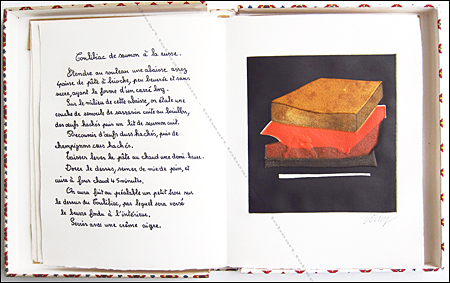 Coulibiac de saumon à la russe.
Etendre au rouleau une abaisse assez
épaisse de pâte à brioche, peu beurrée et sans
sucre, ayant la forme d'un carré long.
Sur le milieu de cette abaisse, on étale une
couche de semoule de sarrasin cuite au bouillon,
des œufs hachés puis un lit de saumon cuit.
Recouvrir d'œufs durs hachés, puis de
champignons crus hachés.
Laisser lever la pâte au chaud une demi-heure.
Dorer le dessus, semer de mie de pain, et
cuire à four chaud 45 minutes.
On aura fait au préalable un petit trou sur
le dessus du Coulibiac, par lequel sera versé
le beurre fondu à l'intérieur.
Servir avec une crème aigre.